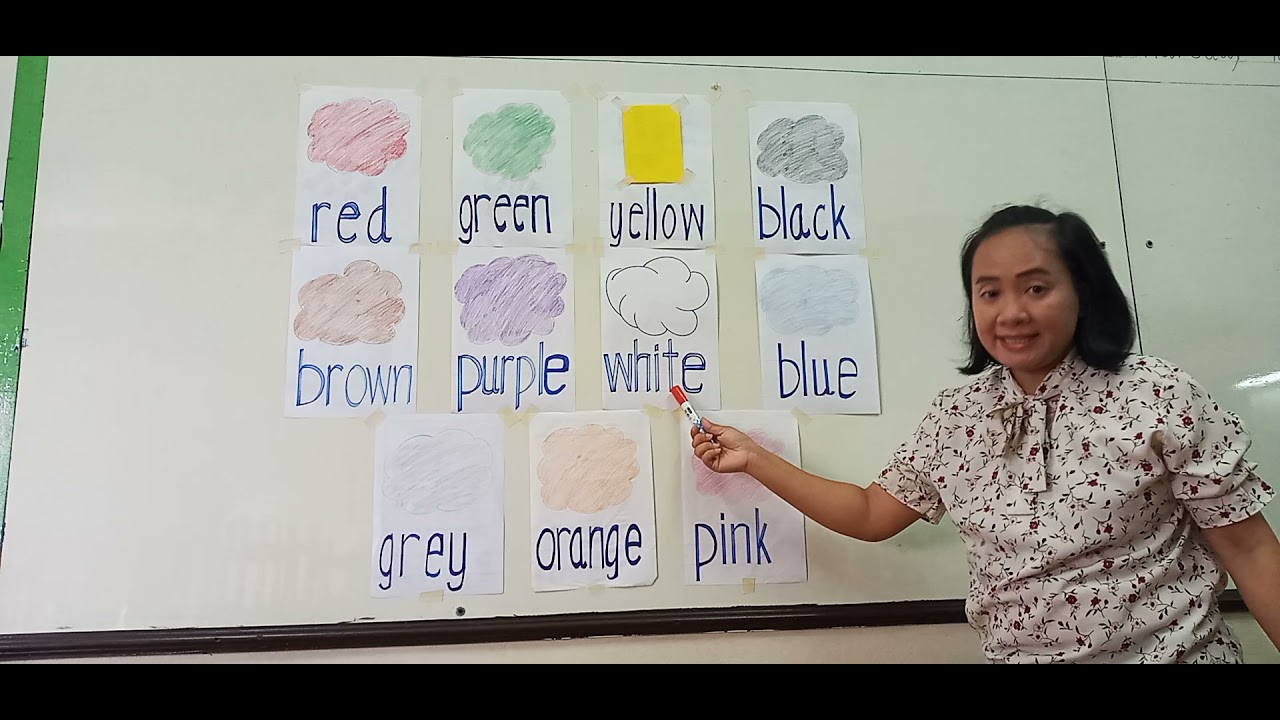 red
green
yellow
black
brown
purple
white
blue
grey
orange
pink